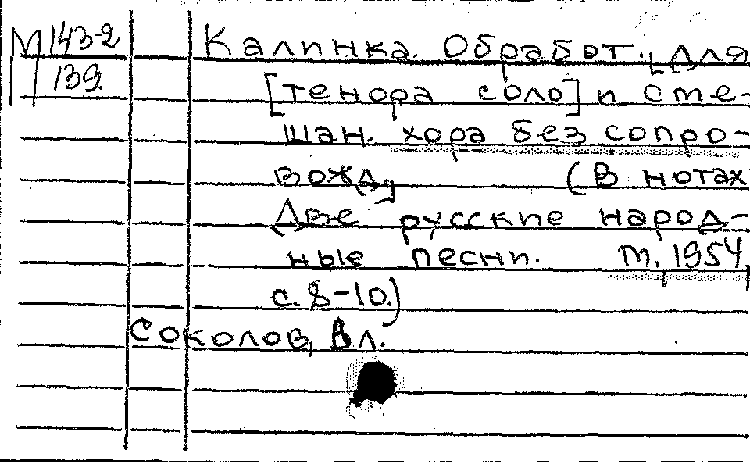 М 143-2
139.
Калинка. Обработ. для
[тенора соло] и сме-
шан. хора без сопро-
вожд. (В нотах
Две русские народ-
ные песни. М. 1954,
с. 8-10.)
Соколов, Вл.